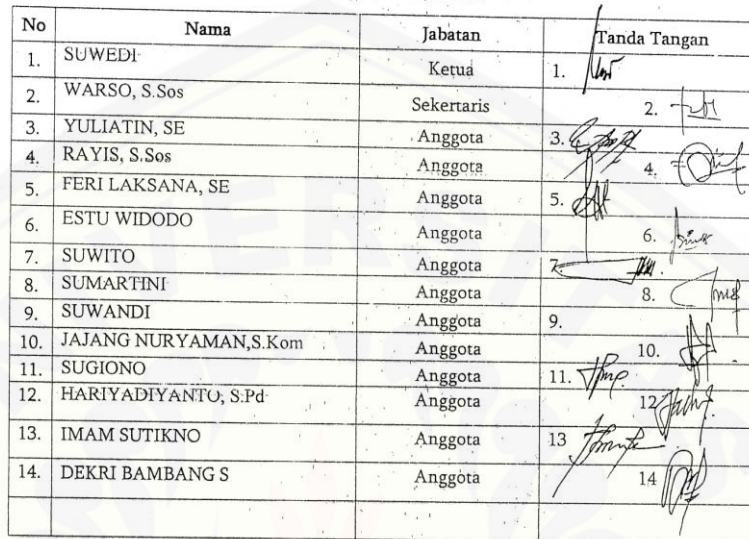 No Nama Jabatan Tanda Tangan
1. SUWEDI Ketua 1.
2. WARSO, S.Sos Sekertaris 2.
3. YULIATIN, SE Anggota 3.
4. RAYIS, S.Sos Anggota 4.
5. FERI LAKSANA, SE Anggota 5.
6. ESTU WIDODO Anggota 6.
7. SUWITO Anggota 7.
8. SUMARTINI Anggota 8.
9. SUWANDI Anggota 9.
10. JAJANG NURYAMAN,S.Kom Anggota 10.
11. SUGIONO Anggota 11.
12. HARIYADIYANTO, S.Pd Anggota 12
13. IMAM SUTIKNO Anggota 13
14. DEKRI BAMBANG S Anggota 14